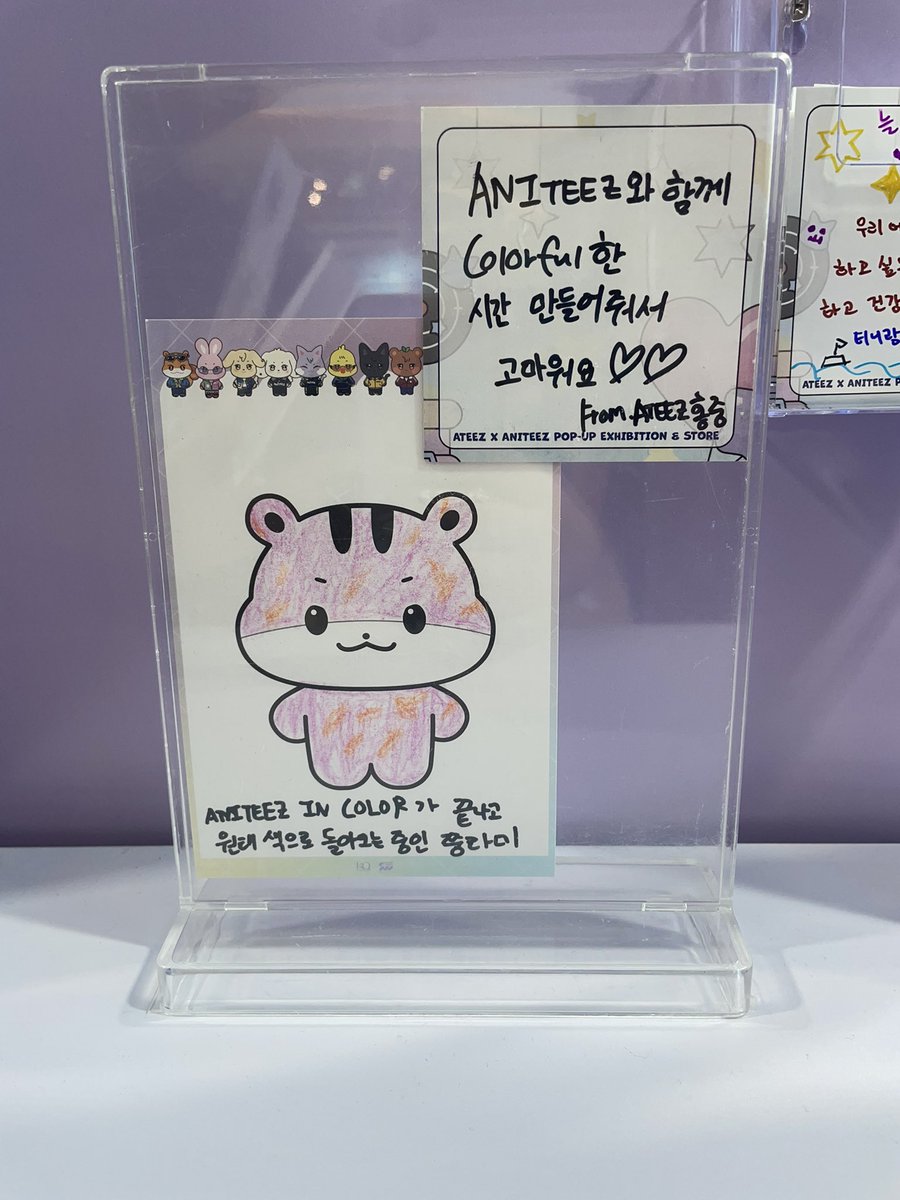 ANITEEZ와 함께
Colorful한
시간 만들어줘서
고마워요 ♡♡
From. ATEEZ 홍중
ATEEZ X ANITEEZ POP-UP EXHIBITION & STORE
ANITEEZ IN COLOR가 끝나고
원래 색으로 돌아가는 중인 쭝다미
늘
우리
하고
하고 건강
티니랑
ATEEZ X ANITEEZ